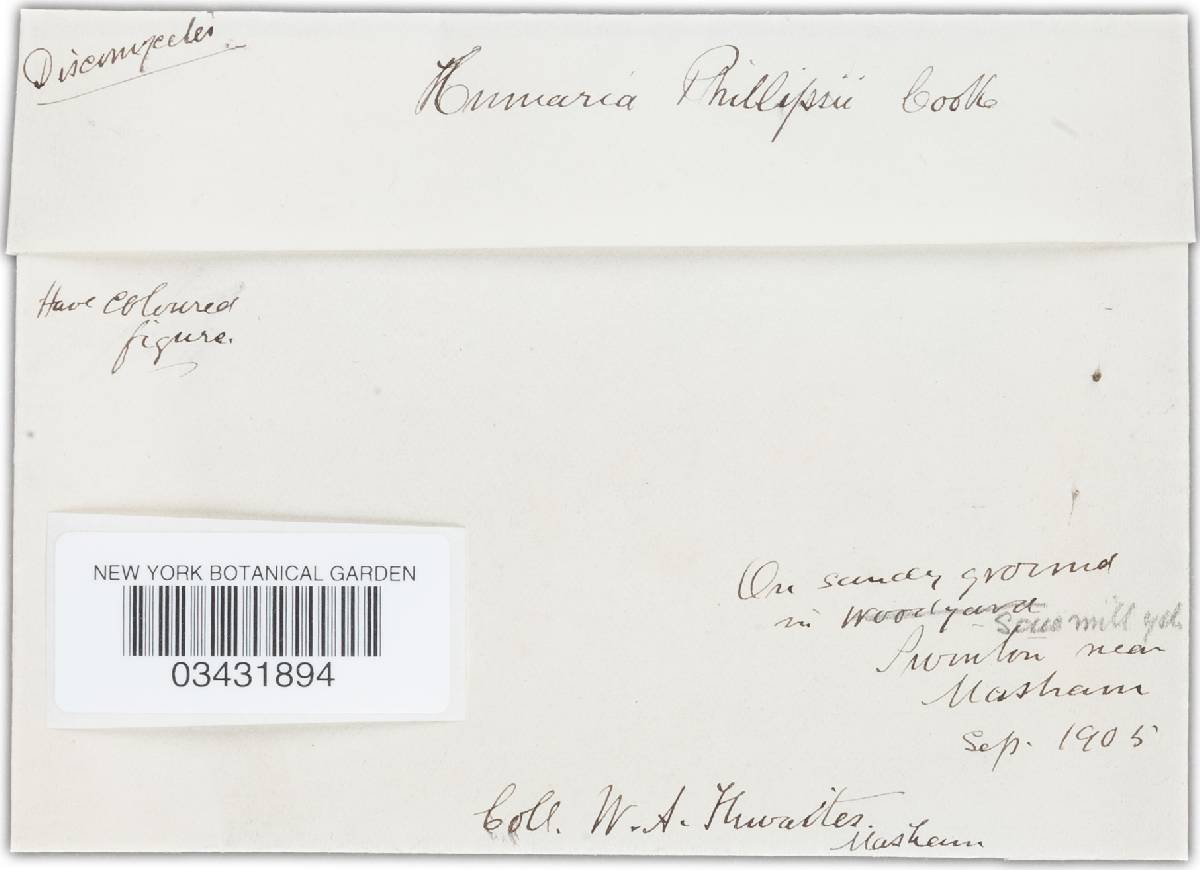 Discomycetes.
Humaria Phillipsii Cooke
Have coloured
figure.
NEW YORK BOTANICAL GARDEN
03431894
On sandy ground
in Woodyard Saw mill yd.
Swinton near
Masham
Sep. 1905
Coll. W. A. Thwaites.
Masham